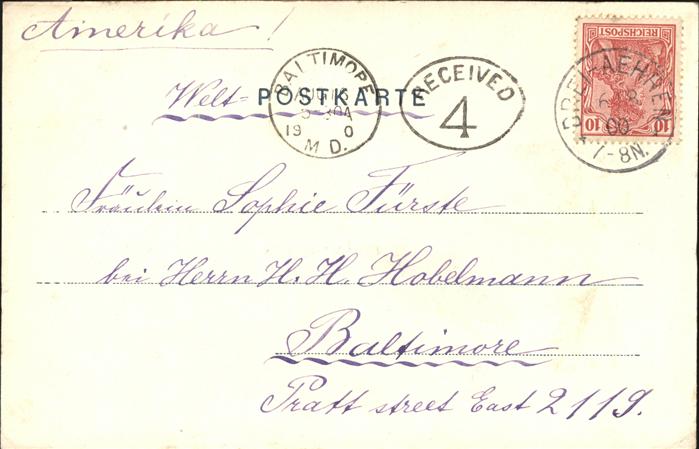 Amerika!
Welt- POSTKARTE
BALTIMORE
AUG 18
19 0
M D.
RECEIVED
4
REICHSPOST
10 10
00
7-8N.
Fräulein Sophie Fürste
bei Herrn H. H. Hobelmann
Baltimore
Pratt street East 2119.